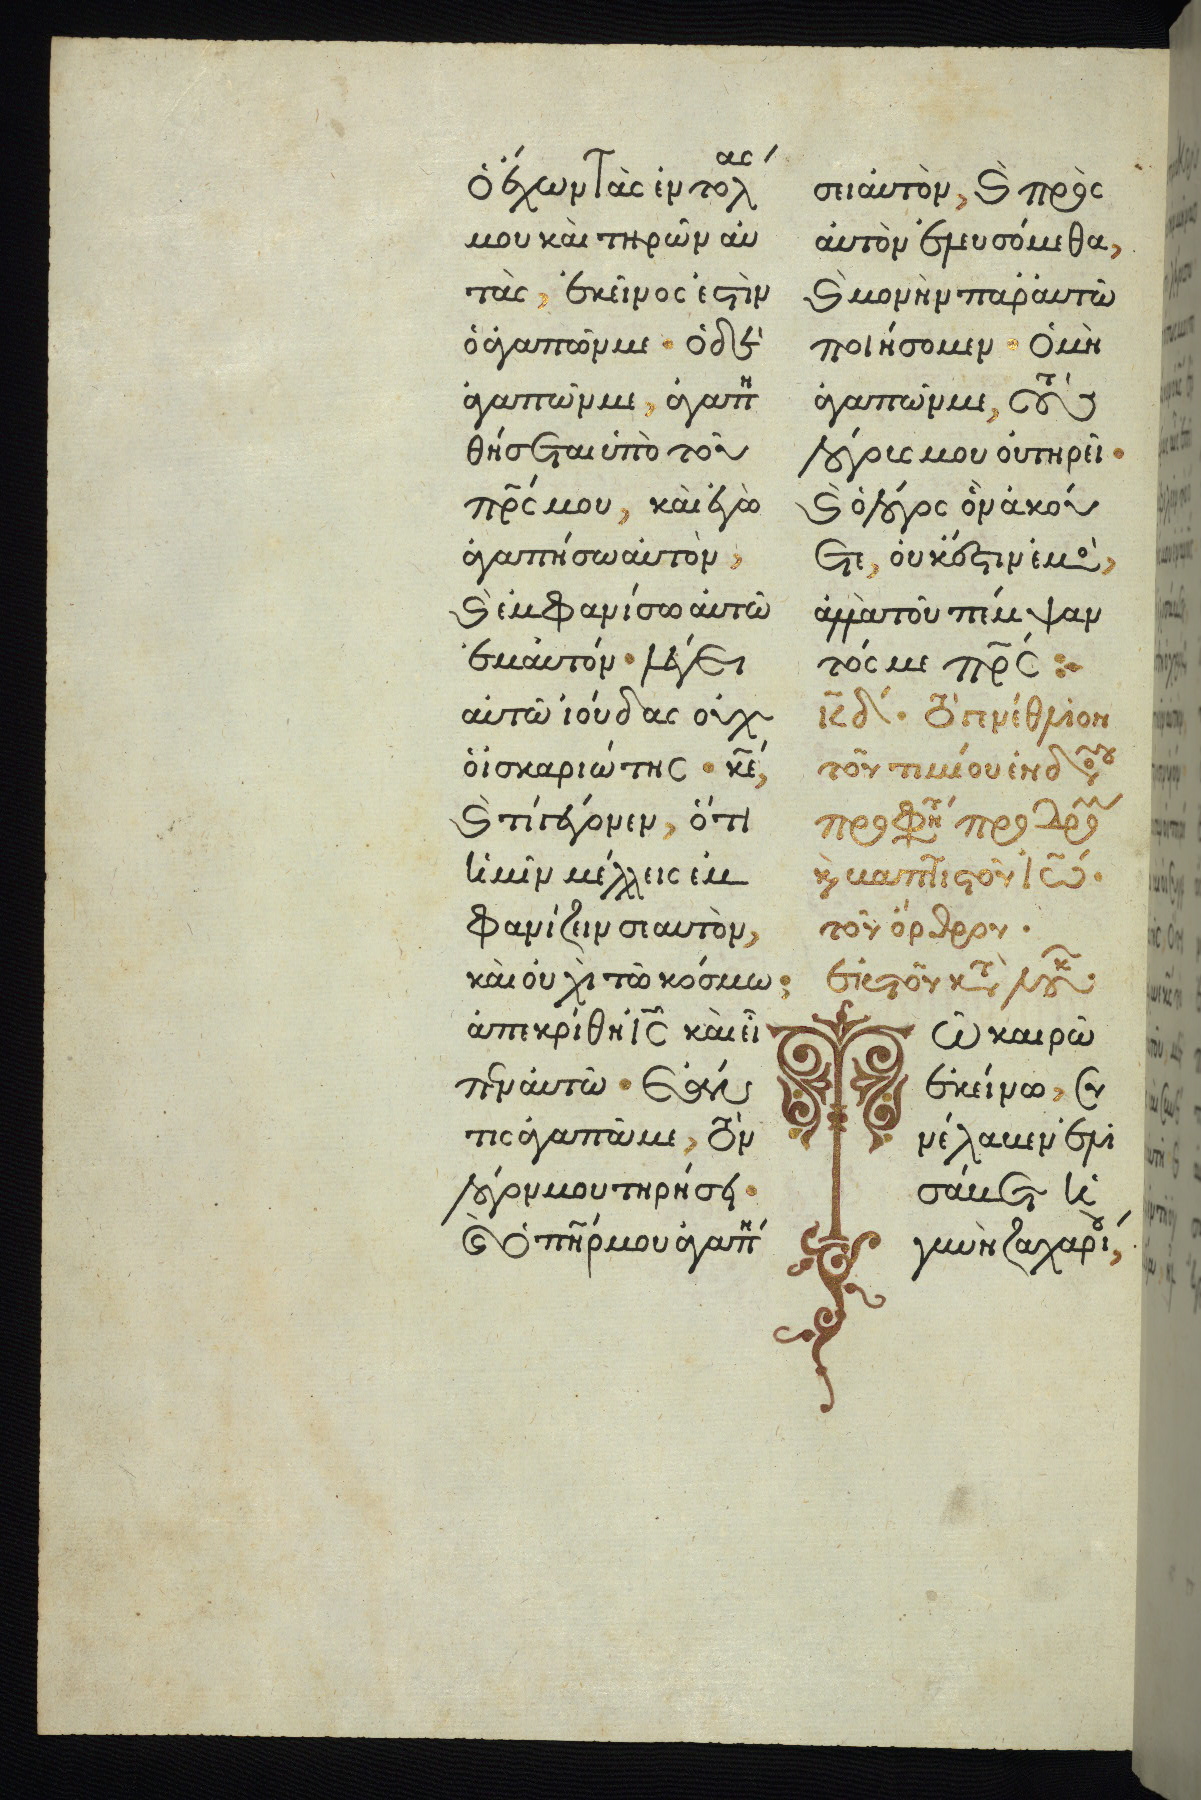 ὁ ἔχων τὰς ἐντολ(ὰς)
μου καὶ τηρῶν αὐ
τὰς, ἐκεῖνος ἐστὶν
ὁ ἀγαπῶν με · ὁ δὲ
ἀγαπῶν με, ἀγαπη
θήσεται ὑπὸ τοῦ
πρς μου, καὶ ἐγὼ
ἀγαπήσω αὐτὸν,
καὶ ἐμφανίσω αὐτῶ
ἐμαυτόν · λέγει
αὐτῶ ἰούδας οὐχ
ὁ ἰσκαριώτης · κε,
καὶ τί γέγονεν, ὅτι
ἡμῖν μέλλεις ἐμ
φανίζειν σεαυτὸν,
καὶ οὐχὶ τῶ κόσμω;
ἀπεκρίθη ις καὶ εἶ
πεν αὐτῶ · ἐάν
τις ἀγαπᾶ με, τὸν
λόγον μου τηρήσει ·
καὶ ὁ πηρ μου ἀγαπή
σει αὐτὸν, καὶ πρὸς
αὐτὸν ἐλευσόμεθα,
καὶ μονὴν παρ' αὐτῶ
ποιήσομεν · ὁ μὴ
ἀγαπῶν με, τοὺς
λόγους μου οὐ τηρεῖ ·
καὶ ὁ λόγος ὃν ἀκού
ετε, οὐκ ἔστιν ἐμὸς,
ἀλλὰ τοῦ πέμψαν
τός με πρς :
κδ · τὸ γενέθλιον
τοῦ τιμίου ἐνδόξου
προφήτου προδρόμου
καὶ βαπτιστοῦ ιω ·
τοῦ ὄρθρου ·
ἐκ τοῦ κατὰ λουκ ·
Τῶ καιρῶ
ἐκείνω, ἐν
μέλαμεν ἐλι
σάβετ ἡ
γυνὴ ζαχαρίου,